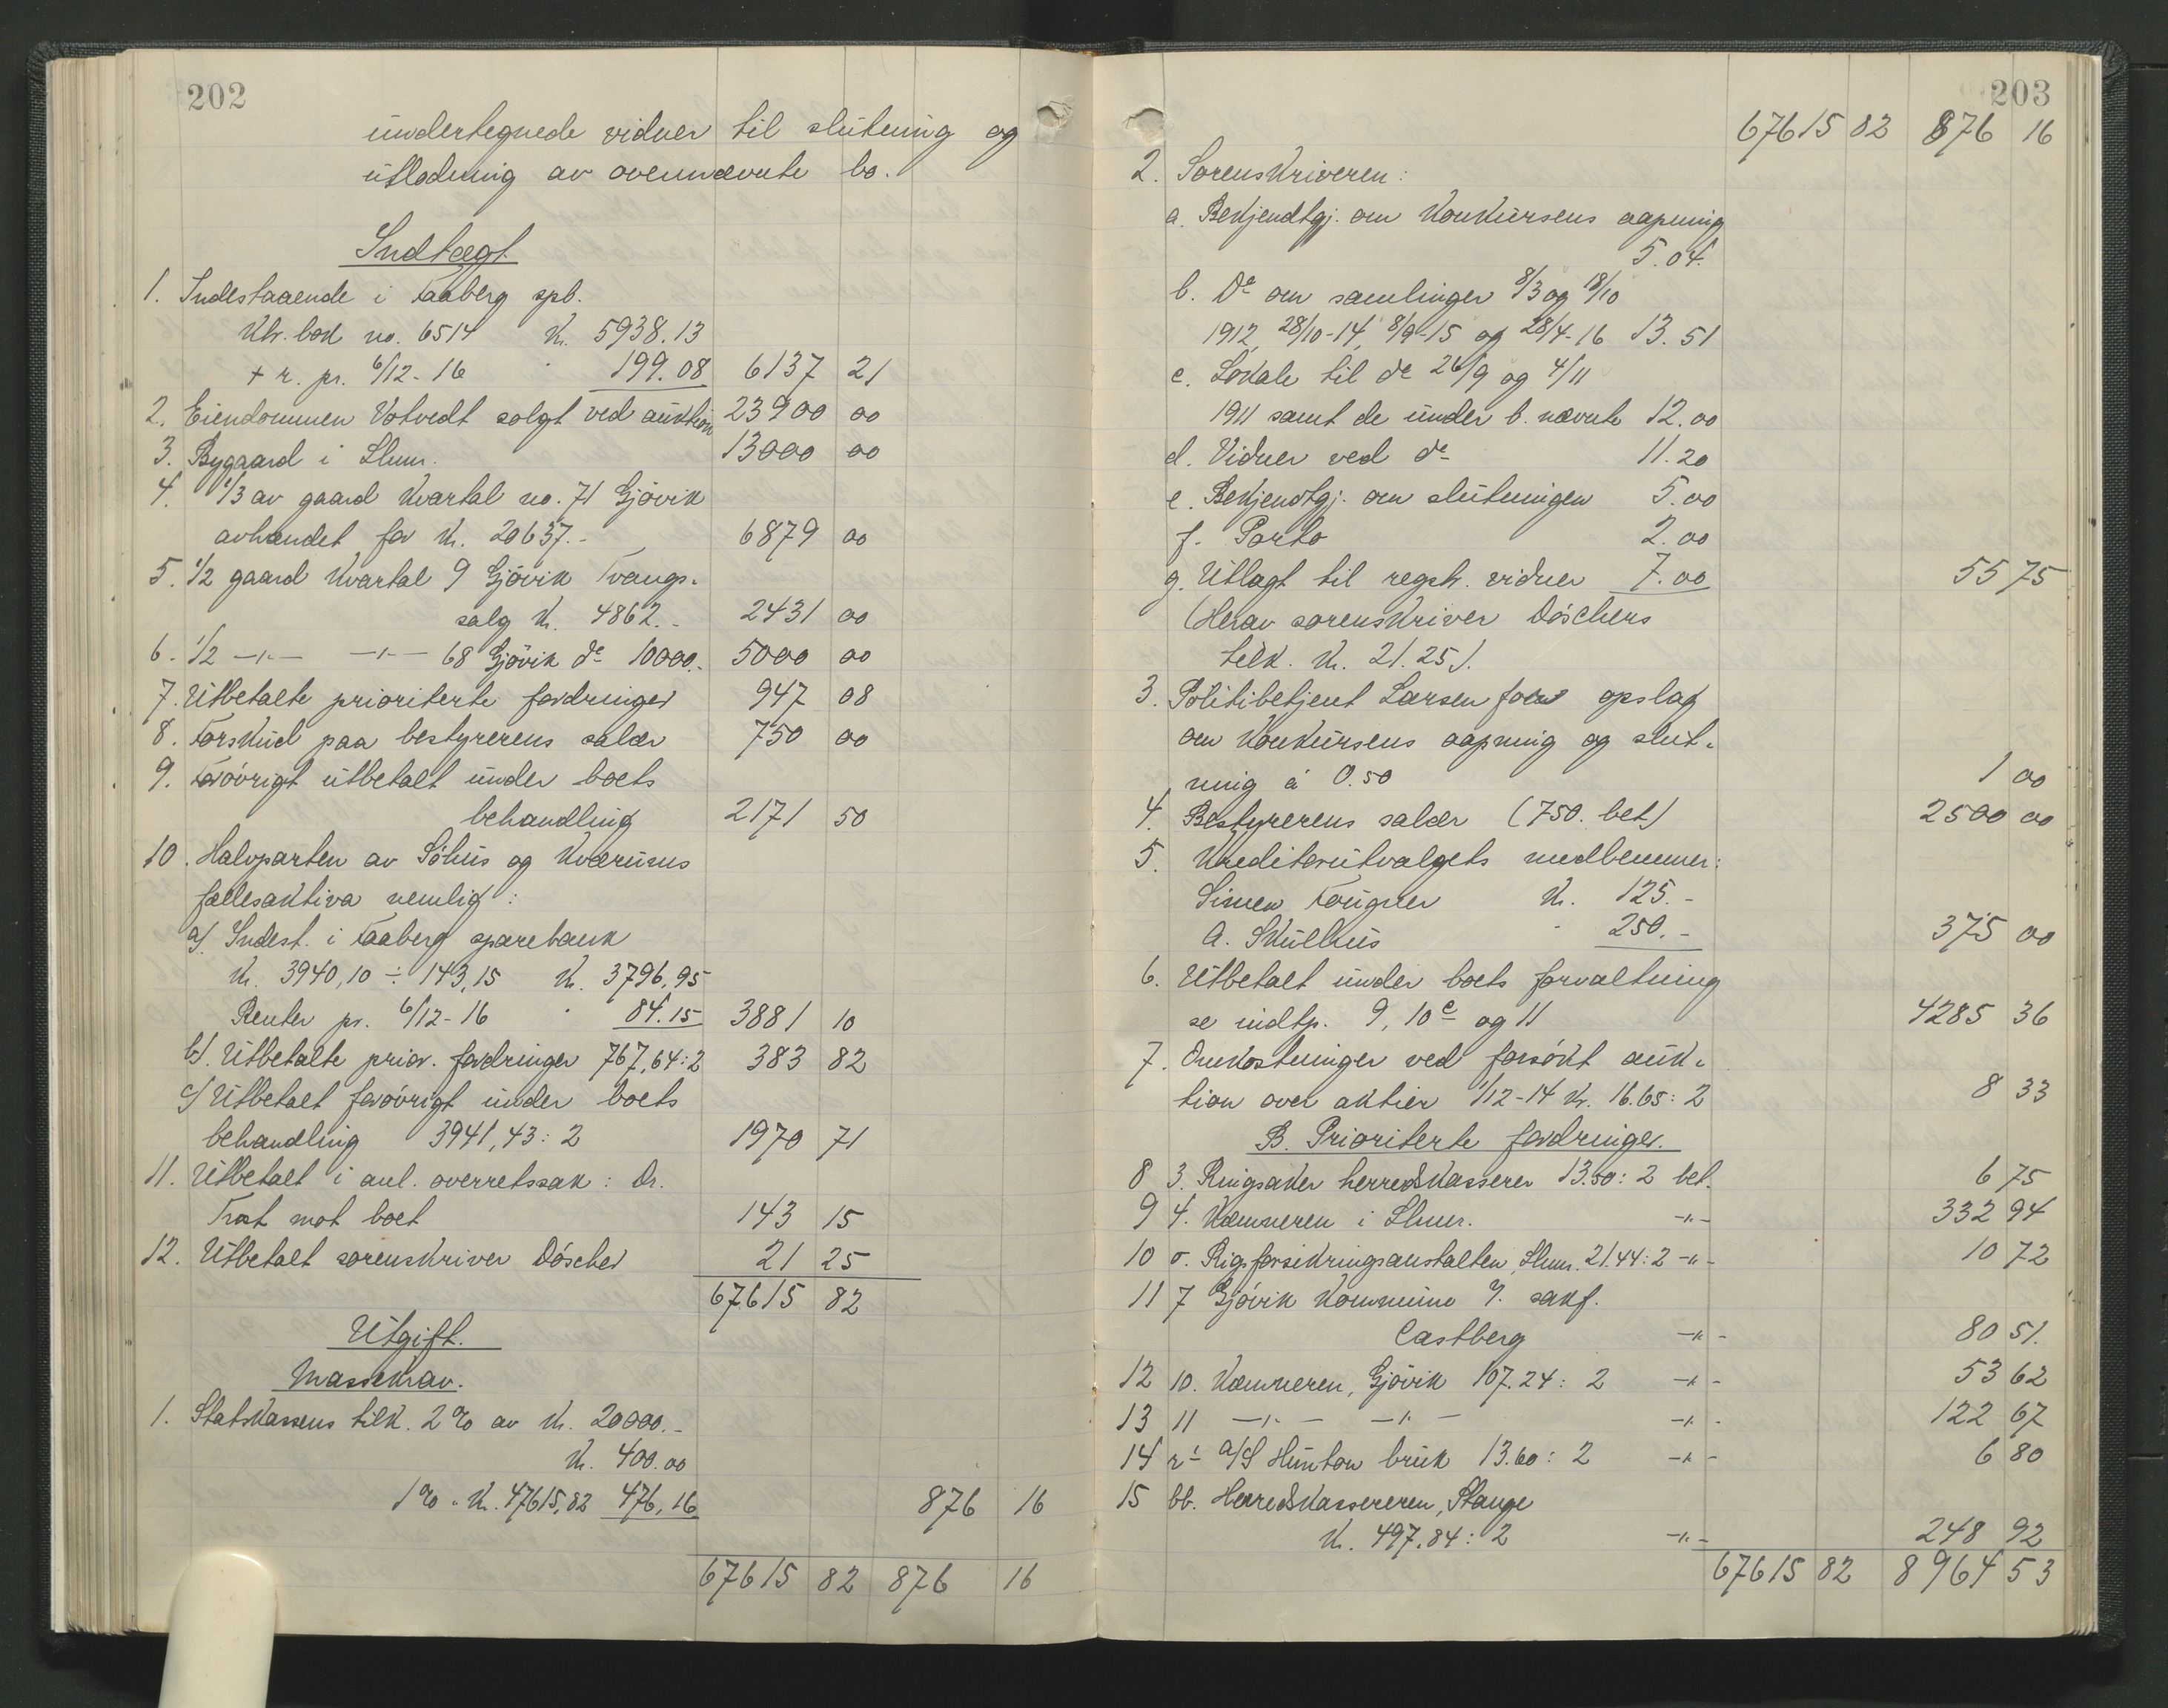 202
undertegnede vidner til slutning og
utlodning av ovennævnte bo.
Indtægt
1. Indestaaende i Faaberg spb.
Ktr. bok no. 6514 Kr. 5938.13
+ r. pr. 6/12-16 " 199.08 6137 21
2. Eiendommen Votvedt solgt ved auktion 23900 00
3. Bygaard i Lhmr. 13000 00
4. 1/3 av gaard Kvartal no. 71 Gjövik
avhændet for Kr. 20637.- 6879 00
5. 1/2 gaard Kvartal 9 Gjövik Tvangs-
salg Kr. 4862.- 2431 00
6. 1/2 -"- -"- 68 Gjövik do 10000.- 5000 00
7. Utbetalte prioriterte fordringer 947 08
8. Forskud paa bestyrerens salær 750 00
9. Forövrigt utbetalt under boets
behandling 2171 50
10. Halvparten av Sölius og Kværums
fællesaktiva nemlig:
a) Indest. i Faaberg sparebank
Kr. 3940,10 ÷ 143,15 Kr. 3796,95
Renter pr. 6/12-16 " 84.15 3881 10
b). Utbetalte prior. fordringer 767,64:2 383 82
c) Utbetalt forövrigt under boets
behandling 3941,43:2 1970 71
11. Utbetalt i anl. overretssak: Dr.
Trot mot boet 143 15
12. Utbetalt sorenskriver Döscher 21 25
67615 82
Utgift.
Massekrav.
1. Statskassens tilk. 2% av Kr. 20000.-
Kr. 400.00
1% " Kr. 47615,82 476,16 876 16
67615 82 876 16
203
67615 82 876 16
2. Sorenskriveren:
a. Bekjendtgj. om Konkursens aapning
5.04.
b. Do om samlinger 8/3 og 18/10
1912, 28/10-14, 8/9-15 og 28/4-16 13.51
c. Lokale til do 26/9 og 4/11
1911 samt de under b. nævnte 12.00
d. Vidner ved do 11.20
e. Bekjendtgj. om slutningen 5.00
f. Porto 2.00
g. Utlagt til regstr. vidner 7.00 55 75
(Herav sorenskriver Döschers
tilk. Kr. 21.25).
3. Politibetjent Larsen for opslag
om Konkursens aapning og slut-
ning á 0.50 1 00
4. Bestyrerens salær (750. bet) 2500 00
5. Kreditorutvalgets medlemmer:
Simen Fougner Kr. 125.-
A. Skulhus " 250.- 375 00
6. Utbetalt under boets forvaltning
se indtp. 9, 10c og 11 4285 36
7. Omkostninger ved forsökt auk-
tion over aktier 1/12-14 Kr. 16.65:2 8 33
B. Prioriterte fordringer.
8 3. Ringsaker herredskasserer 13.50:2 bet. 6 75
9 4. Kæmneren i Lhmr. -"- 332 94
10 o. Rigsforsikringsanstalten, Lhmr. 21.44:2 -"- 10 72
11 7 Gjövik Kommune v. sakf.
Castberg -"- 80 51.
12 10. Kæmneren, Gjövik 107.24:2 -"- 53 62
13 11 -"- -"- -"- 122 67
14 r1 A/S Hunton bruk 13.60:2 -"- 6 80
15 bb. Herredskassereren, Stange
Kr. 497.84:2 -"- 248 92
67615 82 8964 53